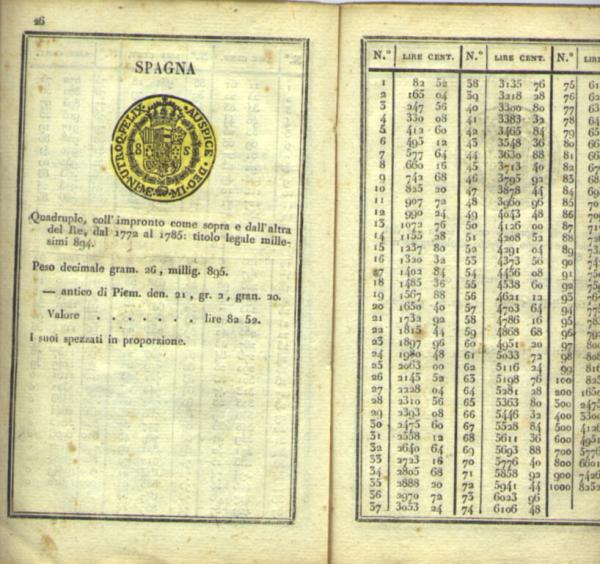 26
SPAGNA
IN·UTROQ·FELIX·AUSPICE·DEO·
8 S
Quadruplo, coll'impronto come sopra e dall'altra
del Re, dal 1772 al 1785: titolo legale mille-
simi 894.
Peso decimale gram. 26, millig. 895.
— antico di Piem. den. 21, gr. 2, gran. 20.
Valore . . . . . . . lire 82 52.
I suoi spezzati in proporzione.
N.° LIRE CENT. N.° LIRE CENT. N.° LIRE
1 82 52 38 3135 76 75 61
2 165 04 39 3218 28 76 62
3 247 56 40 3300 80 77 63
4 330 08 41 3383 32 78 64
5 412 60 42 3465 84 79 65
6 495 12 43 3548 36 80 66
7 577 64 44 3630 88 81 66
8 660 16 45 3713 40 82 67
9 742 68 46 3795 92 83 68
10 825 20 47 3878 44 84 69
11 907 72 48 3960 96 85 70
12 990 24 49 4043 48 86 70
13 1072 76 50 4126 00 87 71
14 1155 28 51 4208 52 88 72
15 1237 80 52 4291 04 89 73
16 1320 32 53 4373 56 90 74
17 1402 84 54 4456 08 91 75
18 1485 36 55 4538 60 92 75
19 1567 88 56 4621 12 93 76
20 1650 40 57 4703 64 94 77
21 1732 92 58 4786 16 95 78
22 1815 44 59 4868 68 96 79
23 1897 96 60 4951 20 97 80
24 1980 48 61 5033 72 98 808
25 2063 00 62 5116 24 99 816
26 2145 52 63 5198 76 100 825
27 2228 04 64 5281 28 200 1650
28 2310 56 65 5363 80 300 2475
29 2393 08 66 5446 32 400 3300
30 2475 60 67 5528 84 500 4126
31 2558 12 68 5611 36 600 4951
32 2640 64 69 5693 88 700 5776
33 2723 16 70 5776 40 800 6601
34 2805 68 71 5858 92 900 7426
35 2888 20 72 5941 44 1000 8252
36 2970 72 73 6023 96
37 3053 24 74 6106 48